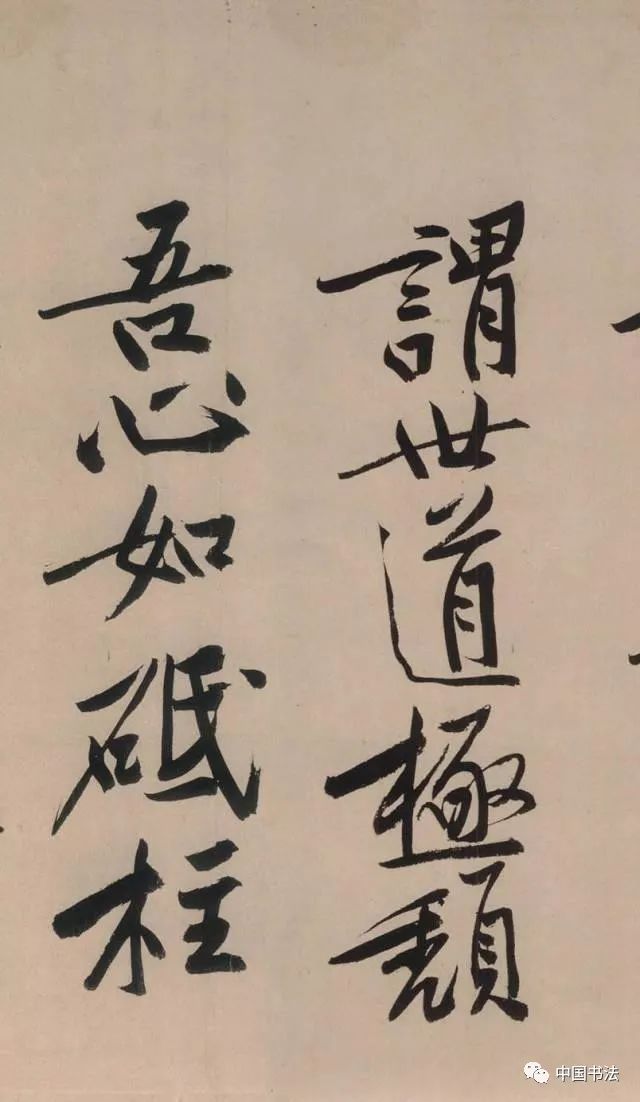 謂世道極頹
吾心如砥柱
中国书法